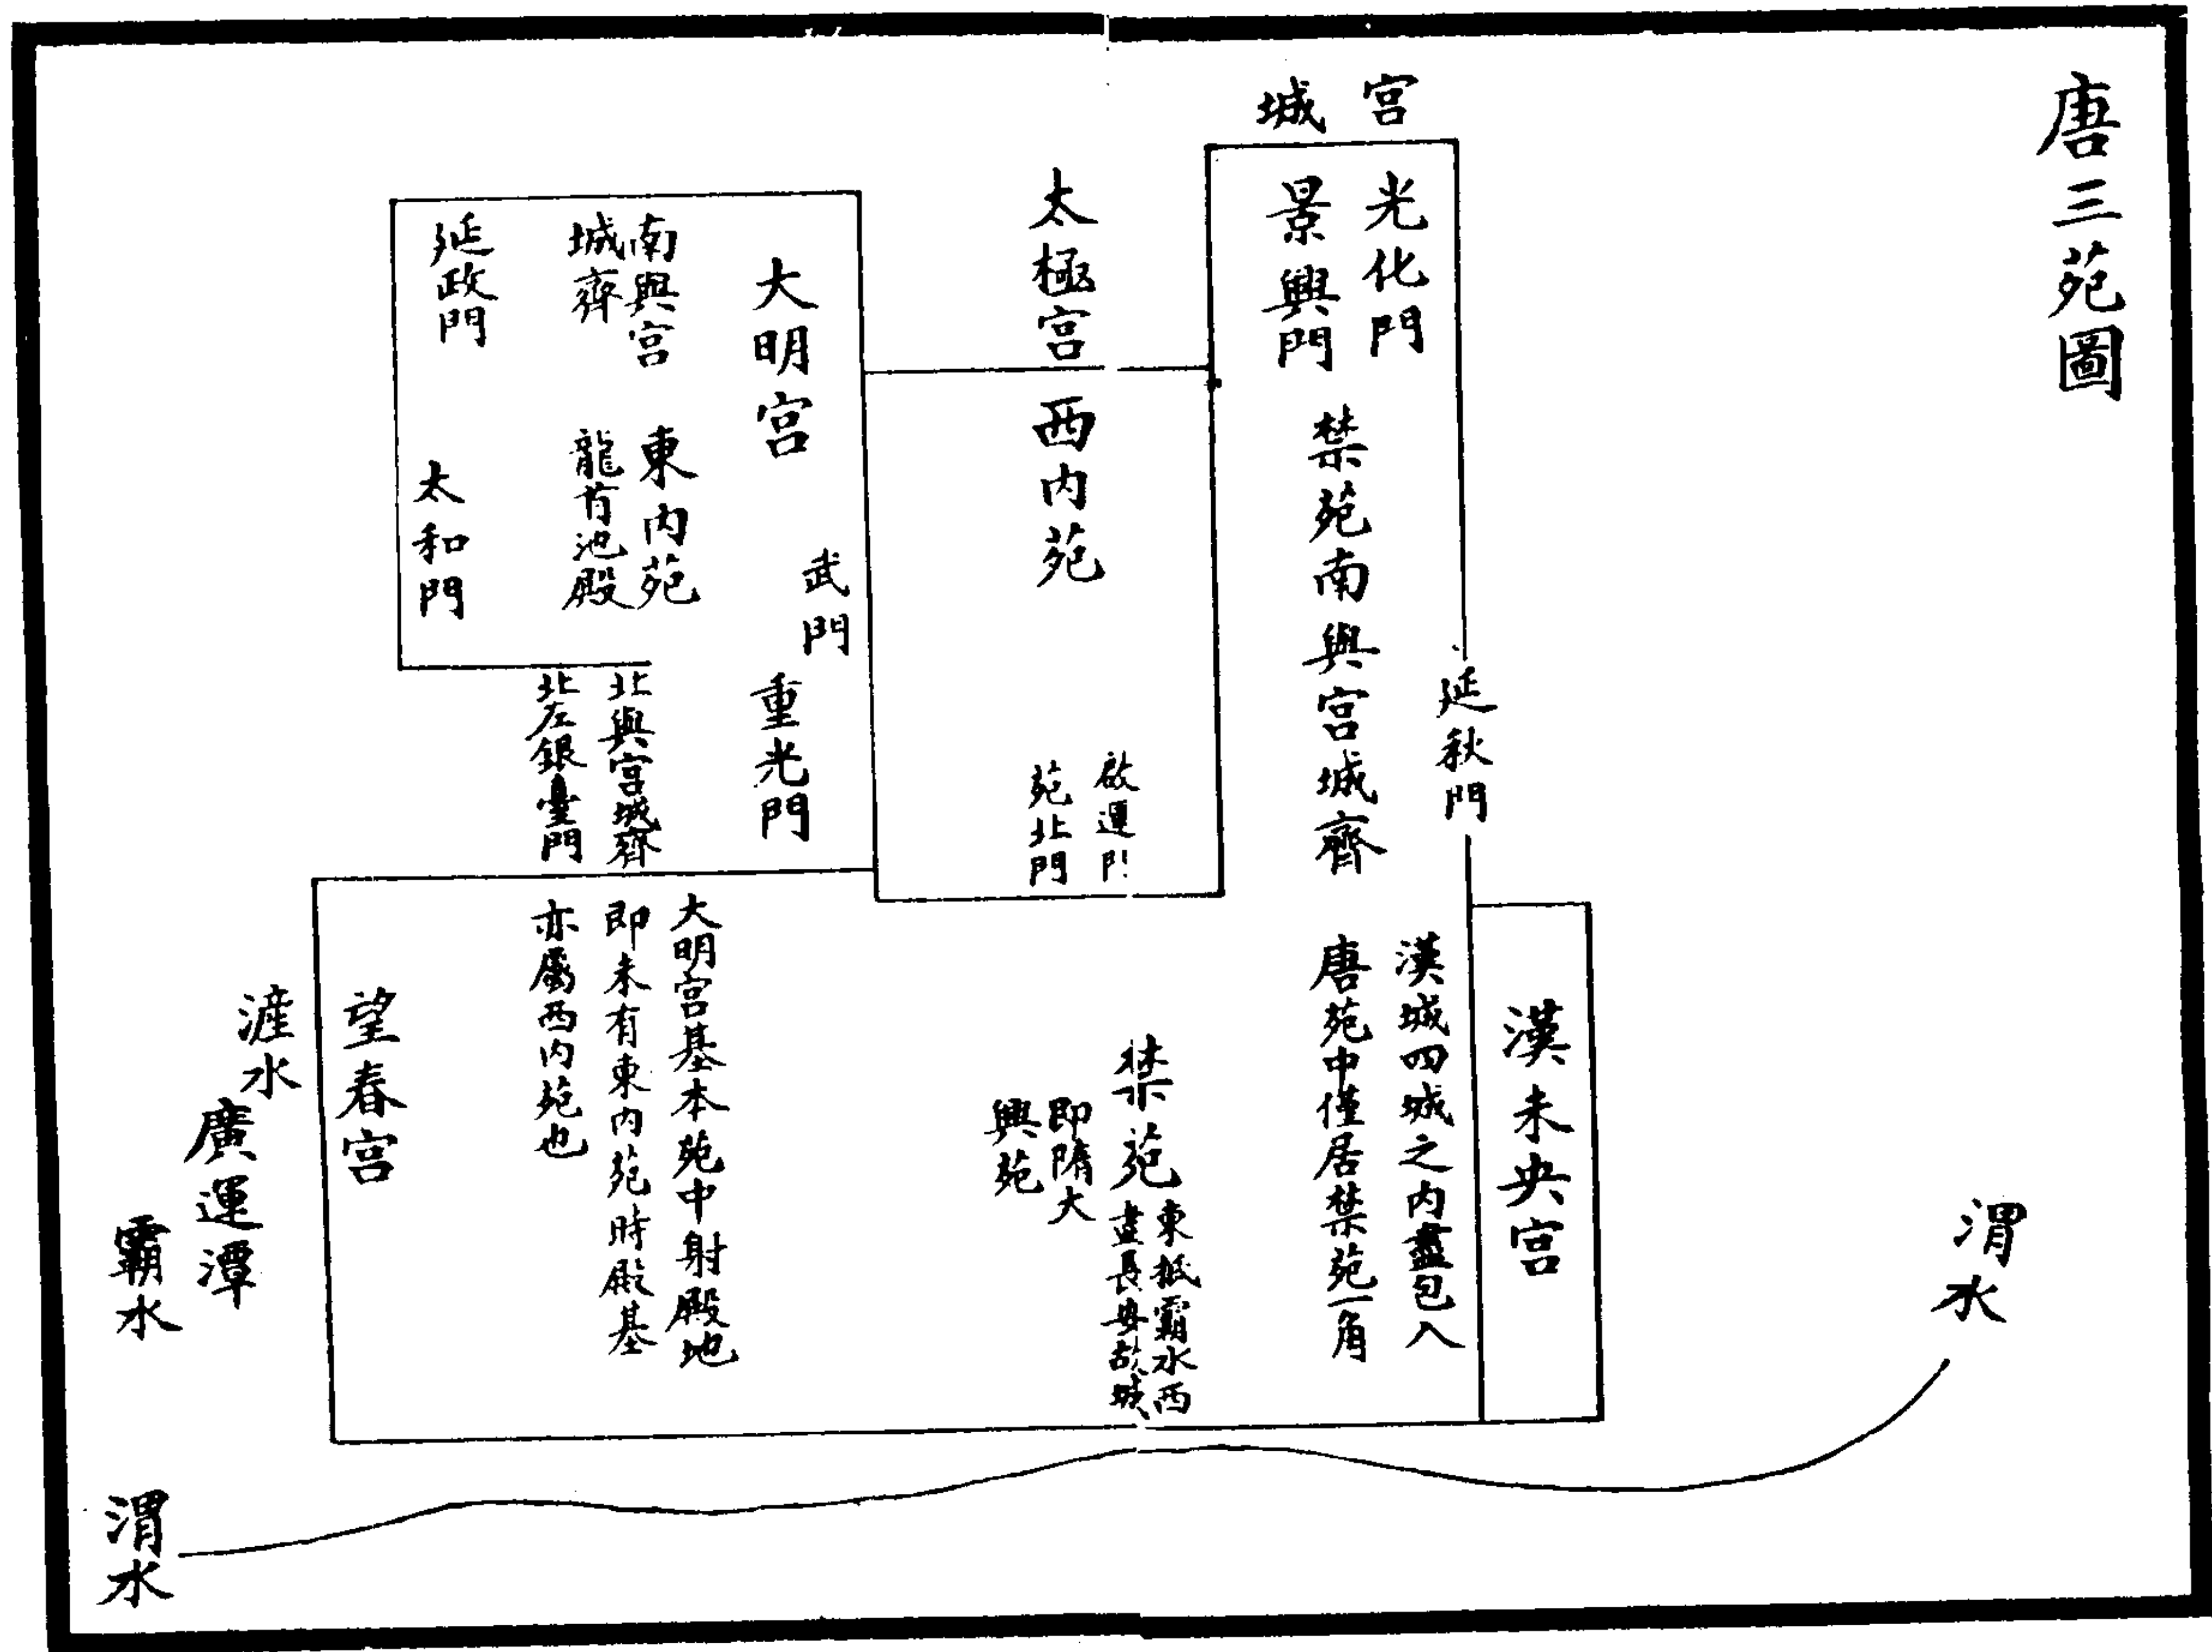 唐三苑圖
渭水
漢未央宮
宮
城
光化門
景興門
延秋門
禁苑南與宮城齊
漢城四城之內盡包入
唐苑中僅居禁苑一角
太極宮
西內苑
啟運門
苑北門
禁苑
東抵霸水西
盡長安故城
即隋大
興苑
大明宮
武門
重光門
南與宮
城齊
東內苑
龍首池殿
北與宮城齊
北左銀臺門
延政門
太和門
大明宮基本苑中射殿地
即未有東內苑時殿基
亦屬西內苑也
望春宮
滻水
廣運潭
霸水
渭水